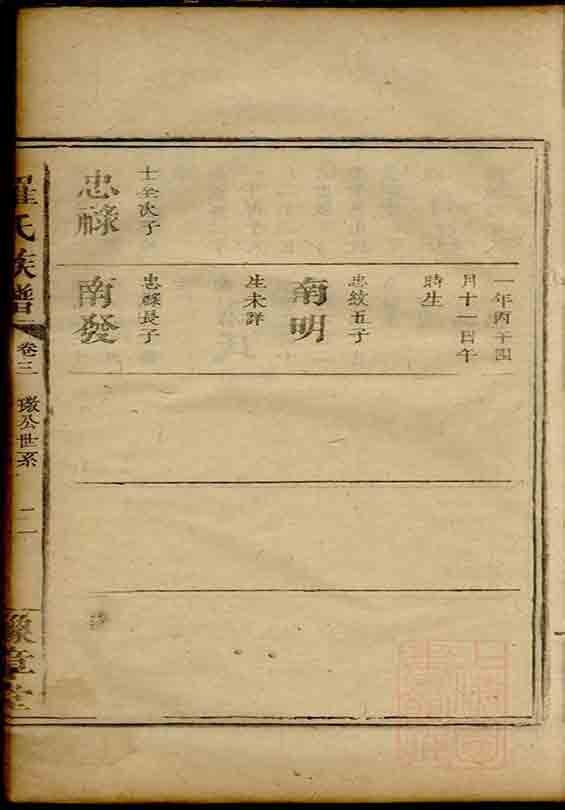 一年丙午四
月十一日午
時生
忠紋五子
南明
生未詳
士全次子
忠祿
忠祿長子
南發
羅氏族譜
卷三
璥公世系
二
豫章堂